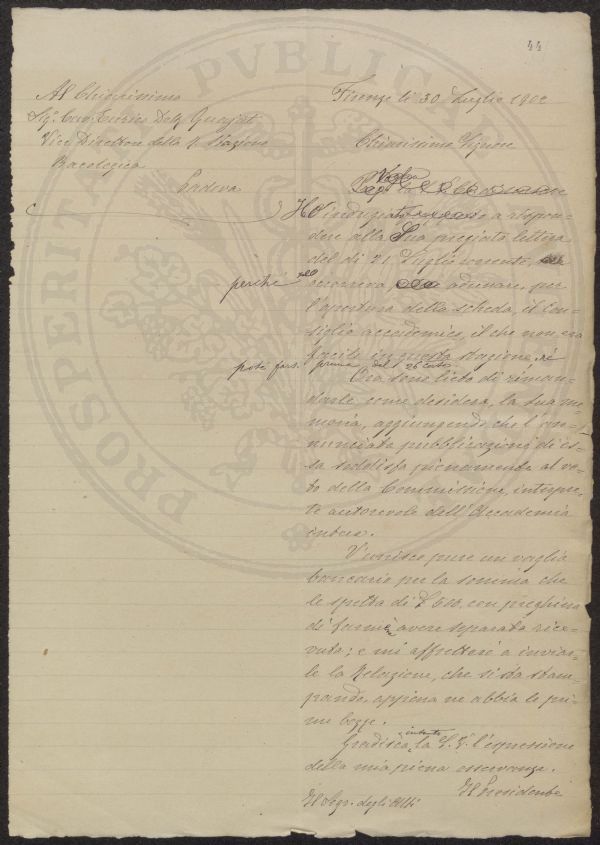 44
Al Chiarissimo
Sig.r Cav. Enrico Dott. Quajat
Vice Direttore della R. Stazione
Bacologica
Padova
Firenze li 30 Luglio 1902
Chiarissimo Signore
Voglia
Ho indugiato a rispon=
dere alla Sua pregiata lettera
del dì 21 Luglio corrente,
perché
occorreva, adunare, per
l'apertura della scheda, il Con=
siglio accademico, il che non era
facile in questa stagione, né
poté farsi prima del 26 corr.te
Ora sono lieto di riman=
darle come desidera, la sua me=
moria, aggiungendo che l'an=
nunciata pubblicazione di es=
sa soddisfa pienamente al vo=
to della Commissione, interpre=
te autorevole dell'Accademia
intera.
Unisco pure un vaglia
bancario per la somma che
le spetta di £ 500, con preghiera
di farmene avere separata rice=
vuta; e mi affretterò a inviar=
le la Relazione, che si sta stam=
pando, appena ne abbia le pri=
me bozze.
Gradisca, intanto la S.V. l'espressione
della mia piena osservanza.
Il Presidente
Il Segr. degli Atti
PROSPERITATI PVBLICAE